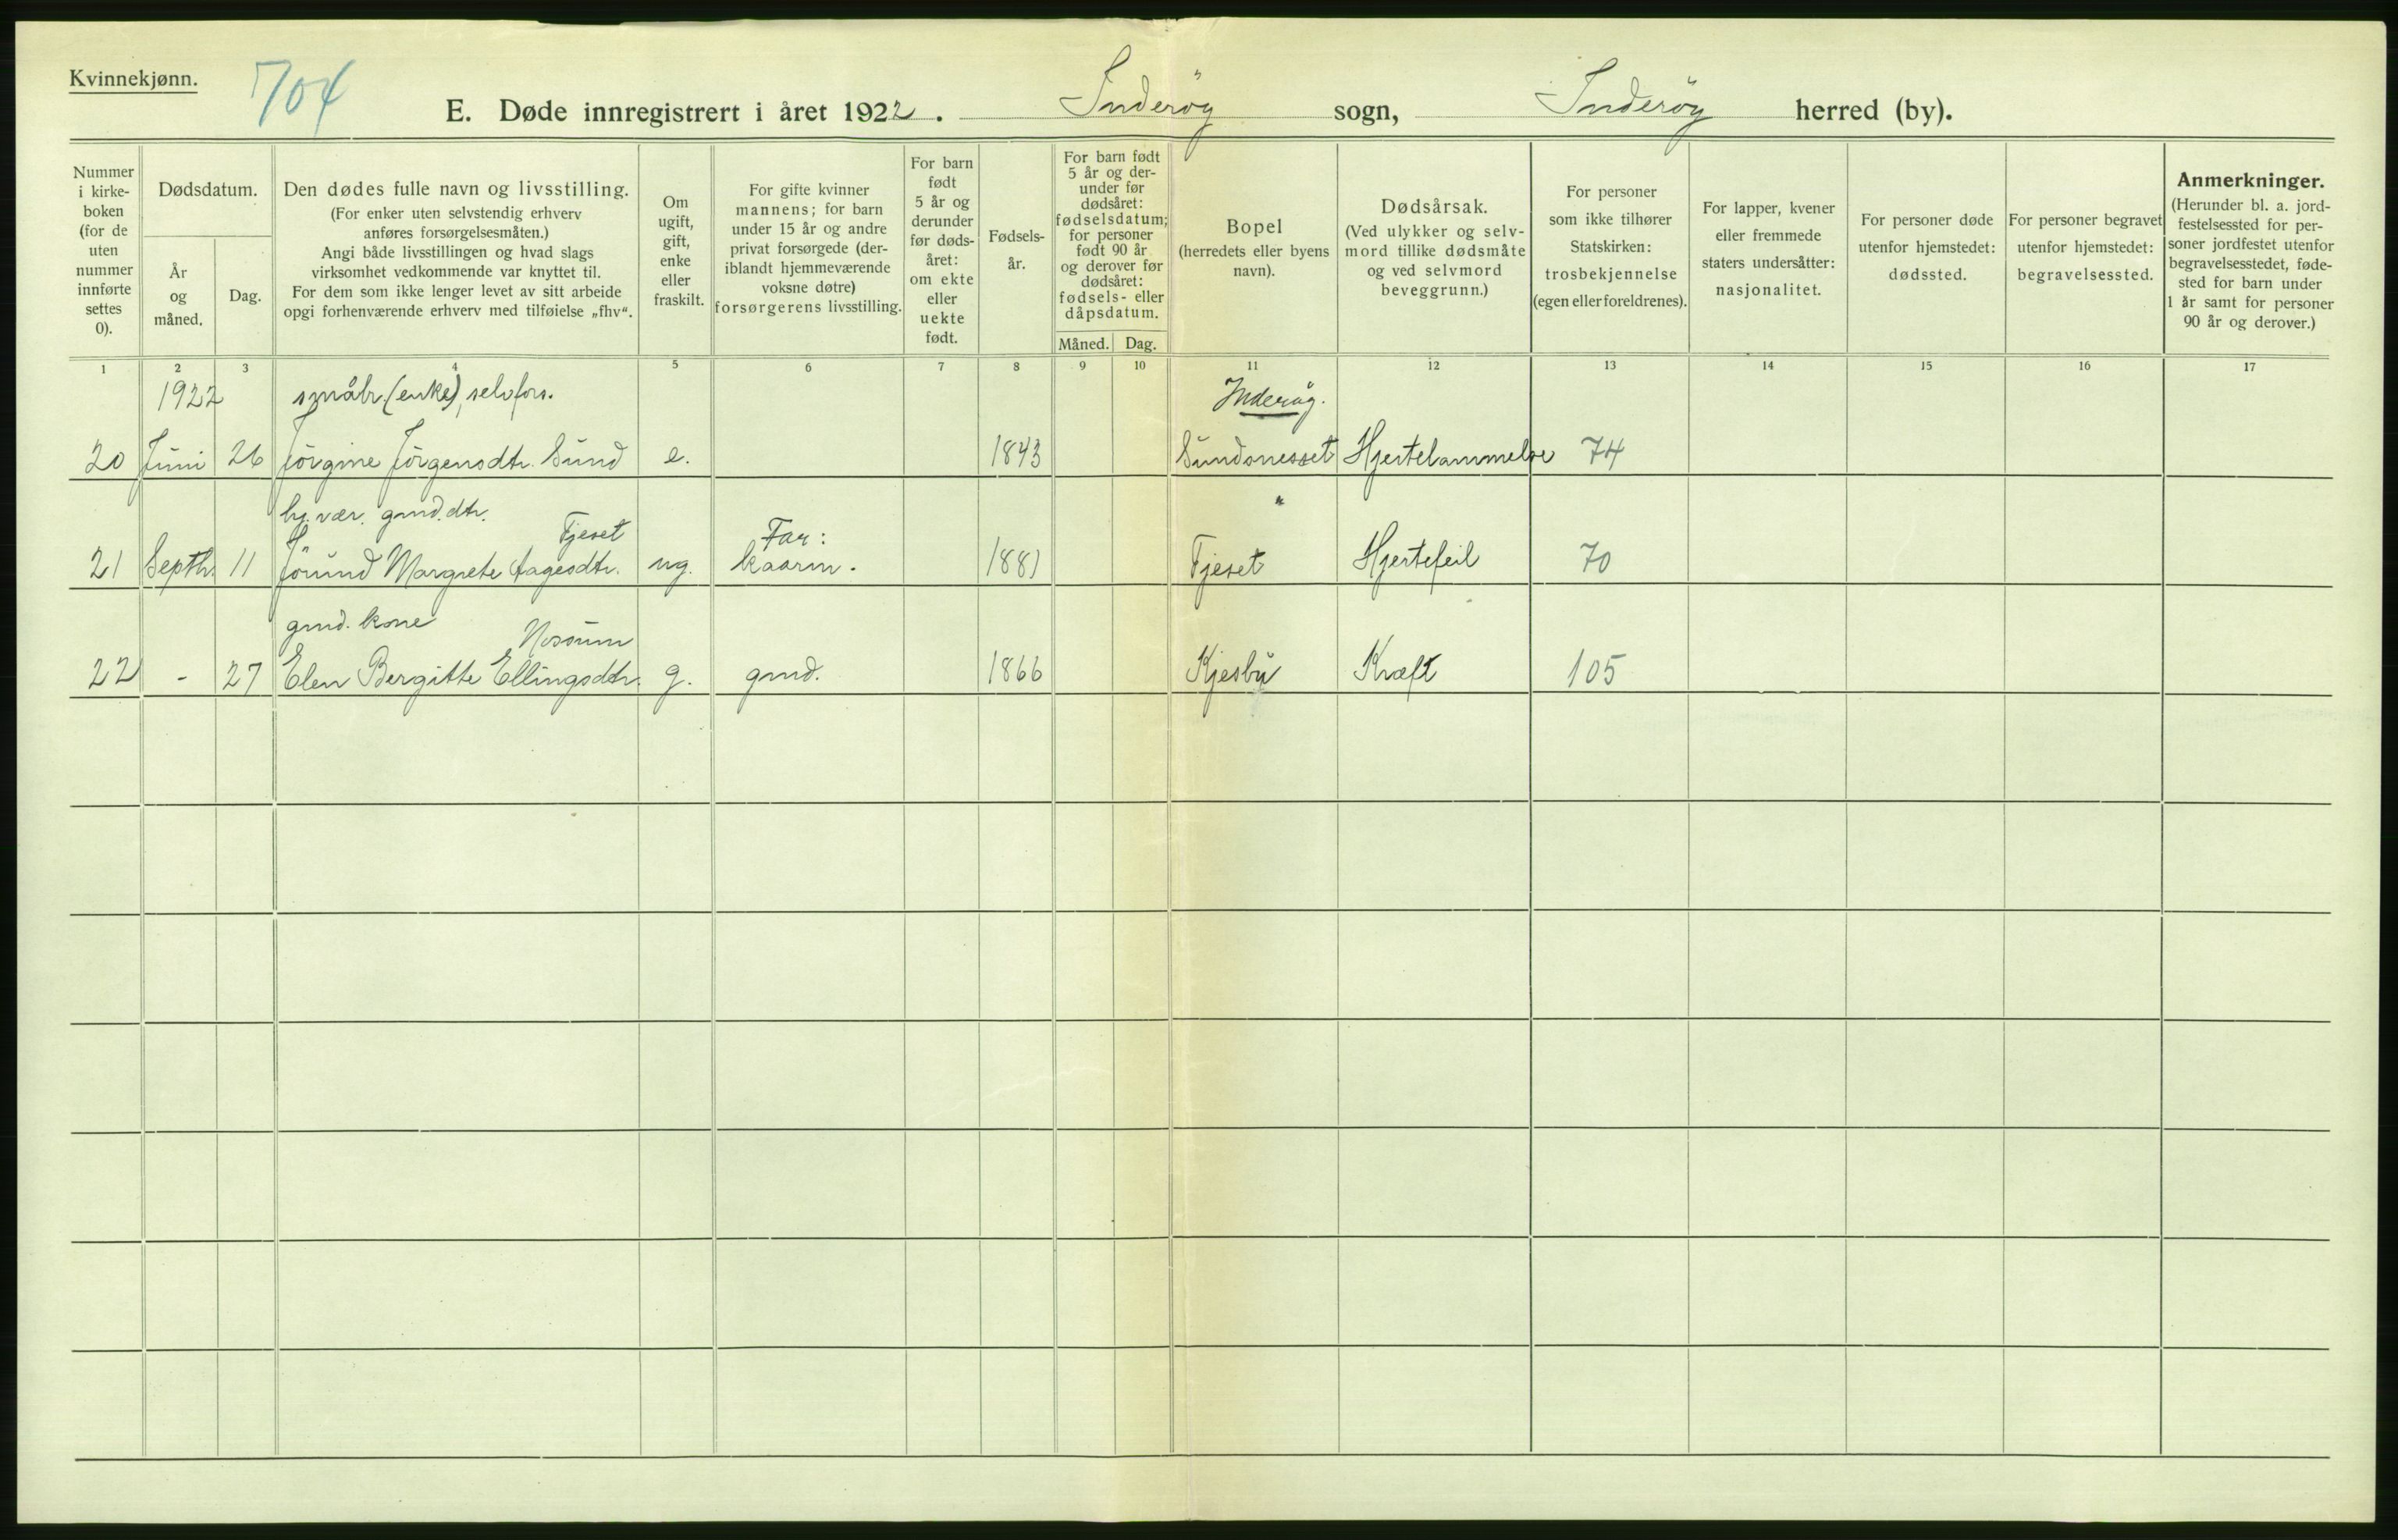 Kvinnekjønn.
704
E. Døde innregistrert i året 1922. Inderøy sogn, Inderøy herred (by).
Nummer i kirke-boken (for de uten nummer innførte settes 0).
Dødsdatum.
År og måned.
Dag.
Den dødes fulle navn og livsstilling.
(For enker uten selvstendig erhverv
anføres forsørgelsesmåten.)
Angi både livsstillingen og hvad slags
virksomhet vedkommende var knyttet til.
For dem som ikke lenger levet av sitt arbeide
opgi forhenværende erhverv med tilføielse „fhv“.
Om ugift, gift, enke eller fraskilt.
For gifte kvinner
mannens; for barn
under 15 år og andre
privat forsørgede (der-
iblandt hjemmeværende
voksne døtre)
forsørgerens livsstilling.
For barn født 5 år og derunder før døds-året: om ekte eller uekte født.
Fødsels-år.
For barn født
5 år og der-
under før
dødsåret:
fødselsdatum;
for personer
født 90 år
og derover før
dødsåret:
fødsels- eller
dåpsdatum.
Måned. Dag.
Bopel
(herredets eller byens
navn).
Dødsårsak.
(Ved ulykker og selv-
mord tillike dødsmåte
og ved selvmord
beveggrunn.)
For personer
som ikke tilhører
Statskirken:
trosbekjennelse
(egen eller foreldrenes).
For lapper, kvener
eller fremmede
staters undersåtter:
nasjonalitet.
For personer døde
utenfor hjemstedet:
dødssted.
For personer begravet
utenfor hjemstedet:
begravelsessted.
Anmerkninger.
(Herunder bl. a. jord-
festelsessted for per-
soner jordfestet utenfor
begravelsesstedet, føde-
sted for barn under
1 år samt for personer
90 år og derover.)
1 2 3 4 5 6 7 8 9 10 11 12 13 14 15 16 17
1922 småbr. (enke), selvfors. Inderøy.
20 Juni 26 Jørgine Jørgensdtr. Sund e. 1843 Sundsnesset Hjertelammelse 74
hj. vær. gmd. dtr. "
Tjeset Far:
21 Septbr. 11 Jørund Margrete Aagesdtr. ug. kaarm. 1881 Tjeset Hjertefeil 70
gmd. kone
Nossum
22 - 27 Elen Bergitte Ellingsdtr. g. gmd. 1866 Kjesbu Kræft 105